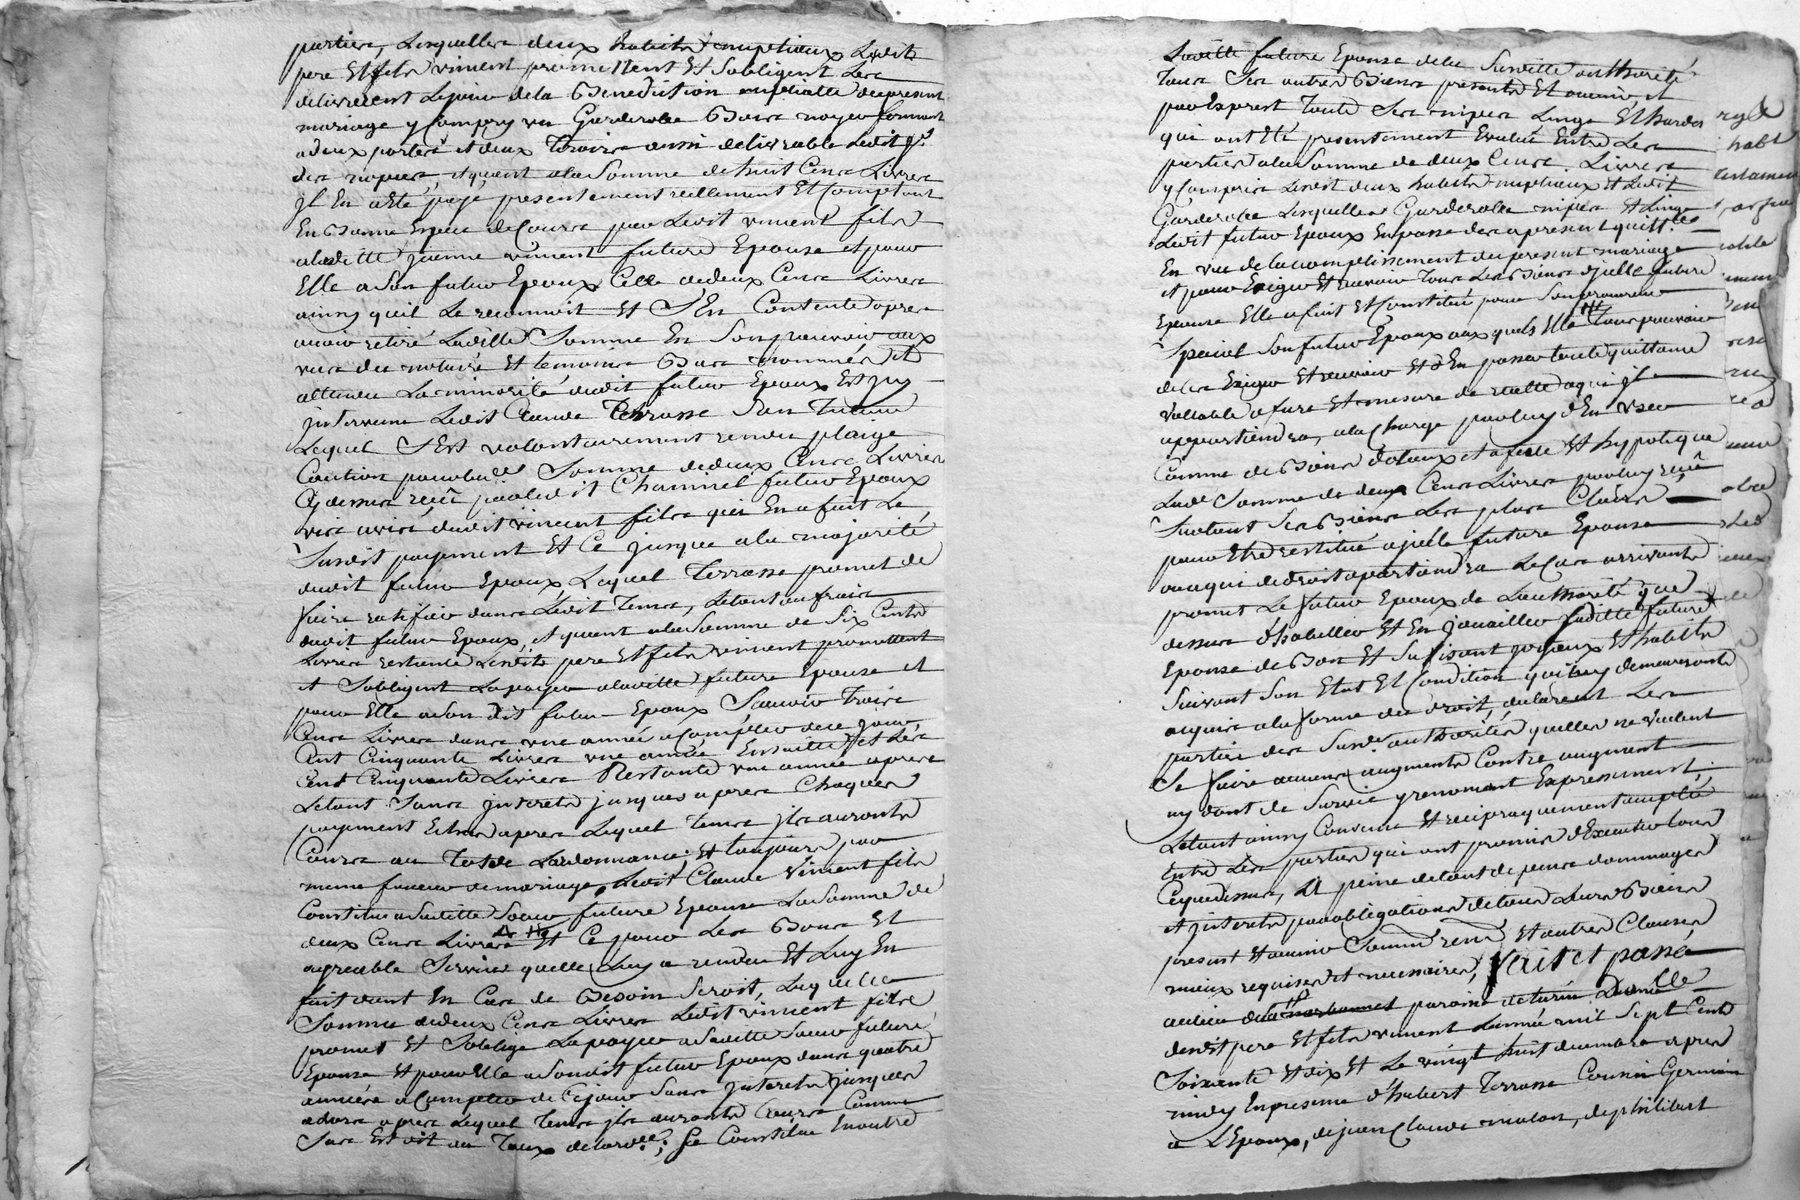 parties, lesquelles deux habits nuptiaux Lesdits
pere Et fils vincent promettent Et Sobligent Les
delivrement Lejour dela Benediction nuptialle dupresent
mariage y Compris un Garderobe Bois noyer fermant
adeux portes et deux Tiroirs aussi delivrable Ledit jr
des nopces, Aquant ala Somme de huit Cens Livres
jl En a Eté payé presentement reellement Et Comptant
En Bonne Espece de Cours par Ledit vincent fils
aladitte jeanne vincent future Epouse et pour
Elle a Son futur Epoux Celle dedeux Cens Livres
ainsy quil Le reconnoit Et S'En Contente apres
avoir retiré Laditte Somme En Sonpouvoir aux
vues du notaire Et temoins Bas nommés Et
attendu La minorité dudit futur Epoux Est jcy
jntervenu Ledit Claude Terrasse Son Tuteur
Lequel S'Est volontairement rendu plaige
Caution pour lad. Somme dedeux Cens Livres
Cydessus reçû par ledit Chammel futur Epoux
vis avis dudit vincent fils qui En a fait Le
Susdit payement Et Ce jusque ala majorité
dudit futur Epoux Lequel Terrasse promet de
faire ratifier dans Ledit Tems, Letout aufrais
dudit futur Epoux, Aquant ala Somme de Six Cents
Livres restante Lesdits pere Et fils vincent promettent
et Sobligent Lapayer aladitte future Epouse et
pour Elle a Son dit futur Epoux Scavoir Trois
Cens Livres dans une année a Compter de ce jour,
Cent Cinquante Livres une année Ensuitte et Les
Cent Cinquante Livres Restante une année apres
Letout Sans jnterets jusques apres Chaques
payement Echus apres Lequel Tems jls auronts
Cours au Tots de Lordonnance; Et toujours par
meme faveur demariage Ledit Claude Vincent fils
Constitue a Saditte Soeur future Epouse La Somme de
deux Cens Livres Et Ce pour Les Bons Et
agreable Services quelle Luy a rendu Et Luy En
fait dont En Cas de Besoin Seroit, Laquelle
Somme dedeux Cens Livres Ledit vincent fils
promet Et Soblige Lapayer a Saditte Soeur future
Epouse Et pour Elle a Sondit futur Epoux dans quatre
années a Compter de Cejour Sans jnterets jusques
adors apres Lequel Tems jls auronts Cours Comme
Sus Est dit au Taux de lordce; Se Constitue Enoutre
Laditte future Epouse dela Susditte authorité
Tous Ses autres Biens presents Et avenir et
par Exprest Toute Ses nipes Linge Et hardes
qui ont Eté presentement Evalués Entre Les
parties ala Somme de deux Cens Livres
y Compris Lesdit deux habits nuptiaux Et Ledit
Garderobe Lesquelles Garderobe nipes Et Linge
Ledit futur Epoux Enpasse des apresent quittce
En vue de lacomplissement du present mariage
et pour Exiger Et recevoir Tous Les Biens d'jcelle future
Epouse Elle a fait Et Constitué pour Sonprocureur
Special Son futur Epoux aux quels Elle donne pouvoir
de les Exiger Et recevoir Et d'En passer toute quittance
vallable a fure Et mesure de recette a qui jl
appartiendra, ala Charge parluy d'En user
Comme de Biens dotaux et afecte Et hypoteque
Lade Somme de deux Cens Livres par luy reçû
Surtout Ses Biens Les plus Clairs
pour Etre restitué a jcelle future Epouse
ou aqui de droit apartiendra Le Cas arrivants
promet Le futur Epoux de Lauthorité que
dessus d'habiller Et En jouailler Laditte future
Epouse de Bon Et Sufisant joyaux Et habits
Suivant Son Etat Et Condition qui luy demeureronts
acquis ala forme du droit, declarent Les
parties des Susde authorités quelles ne Veulent
Se faire aucuns augments Contre augment
ny dont de Survie y renoncent Expressement
Letout ainsy Convenu Et reciproquement accepté
Entre Les parties qui ont promis d'Executer tous
Cequedessus, A peine detout depens dommages
et jnterets par obligations detous Leurs Biens
present Et avenir Soumd renod Et autres Clauses
mieux requises Et necessaires, fait et passé
paroisse de Domicille
desdit pere Et fils vincent Lannée mil Sept Cents
Soixante Et dix Et Le vingt huit decembre apres
midy Enpresence d'hubert Terrasse Cousin Germain
a L'Epoux, de jean Claude molon, de philibert